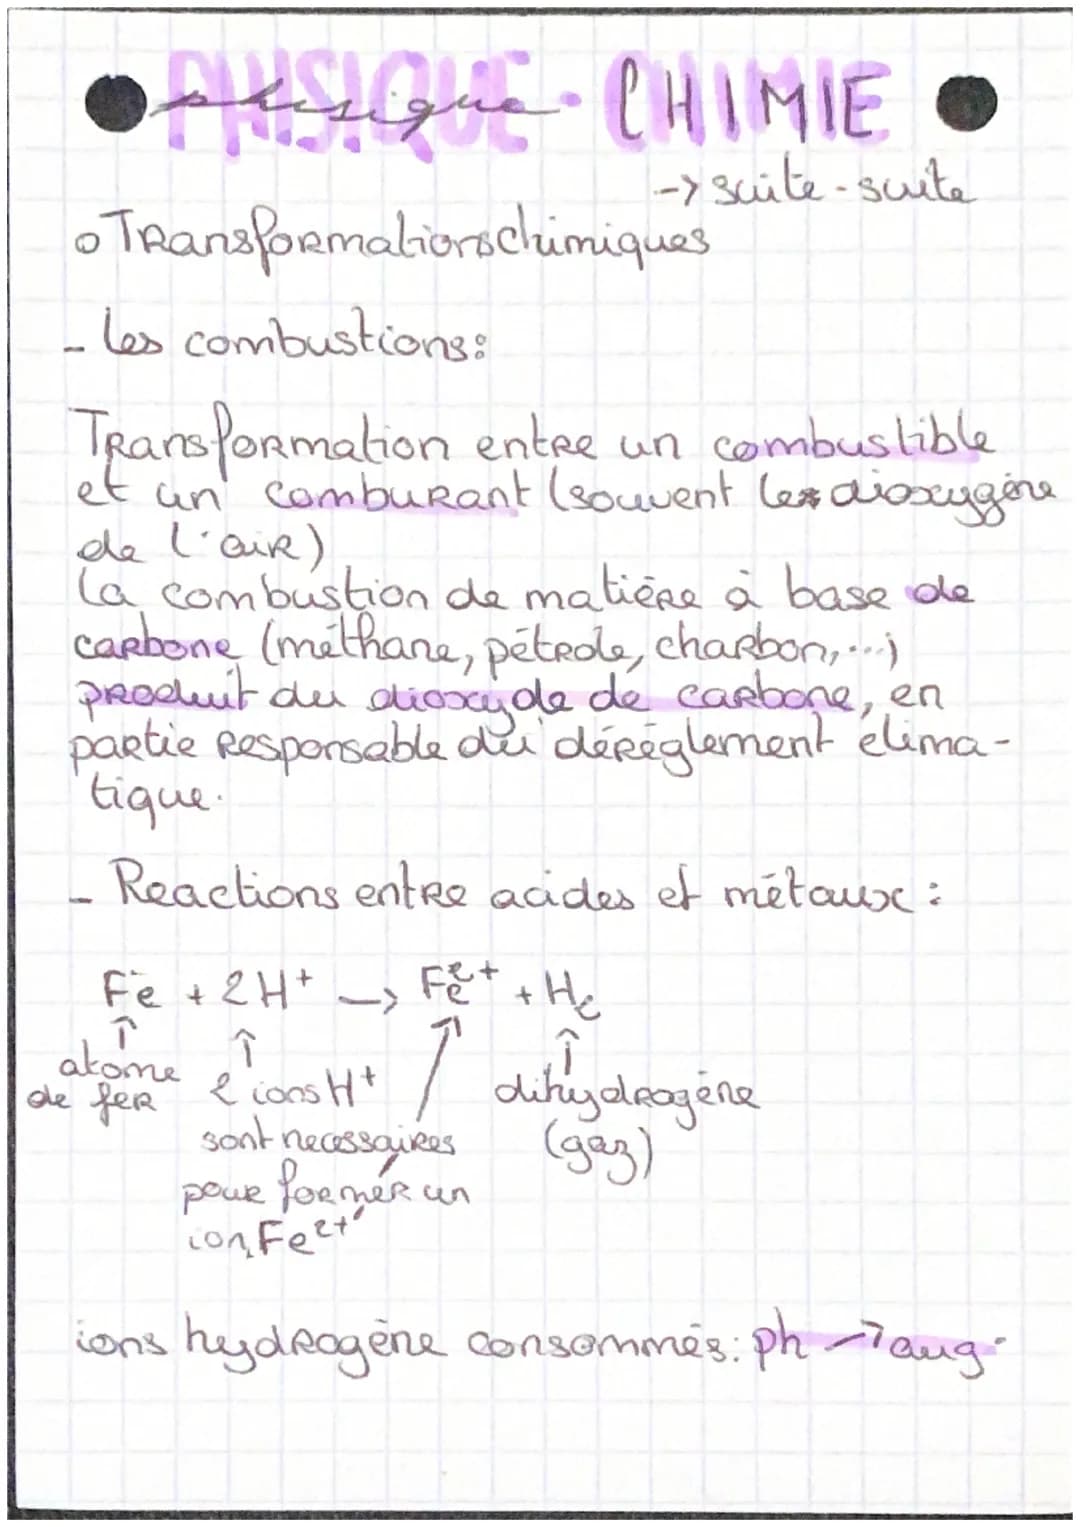 PHYSIQUE - CHIMIE
-> suite - suite
o Transformations chimiques
- les combustions:
Transformation entre un combustible
et un comburant (souvent le dioxygène
de l'air)
la combustion de matière à base de
carbone (méthane, pétrole, charbon,...)
produit du dioxyde de carbone, en
partie responsable du dérèglement clima-
tique.
- Reactions entre acides et métaux :
Fe + 2H+ -> Fe2+ + H2
atome de fer
2 ions H+ sont necessaires pour former un ion Fe2+
dihydrogène (gaz)
ions hydrogène consommés: ph -> aug.